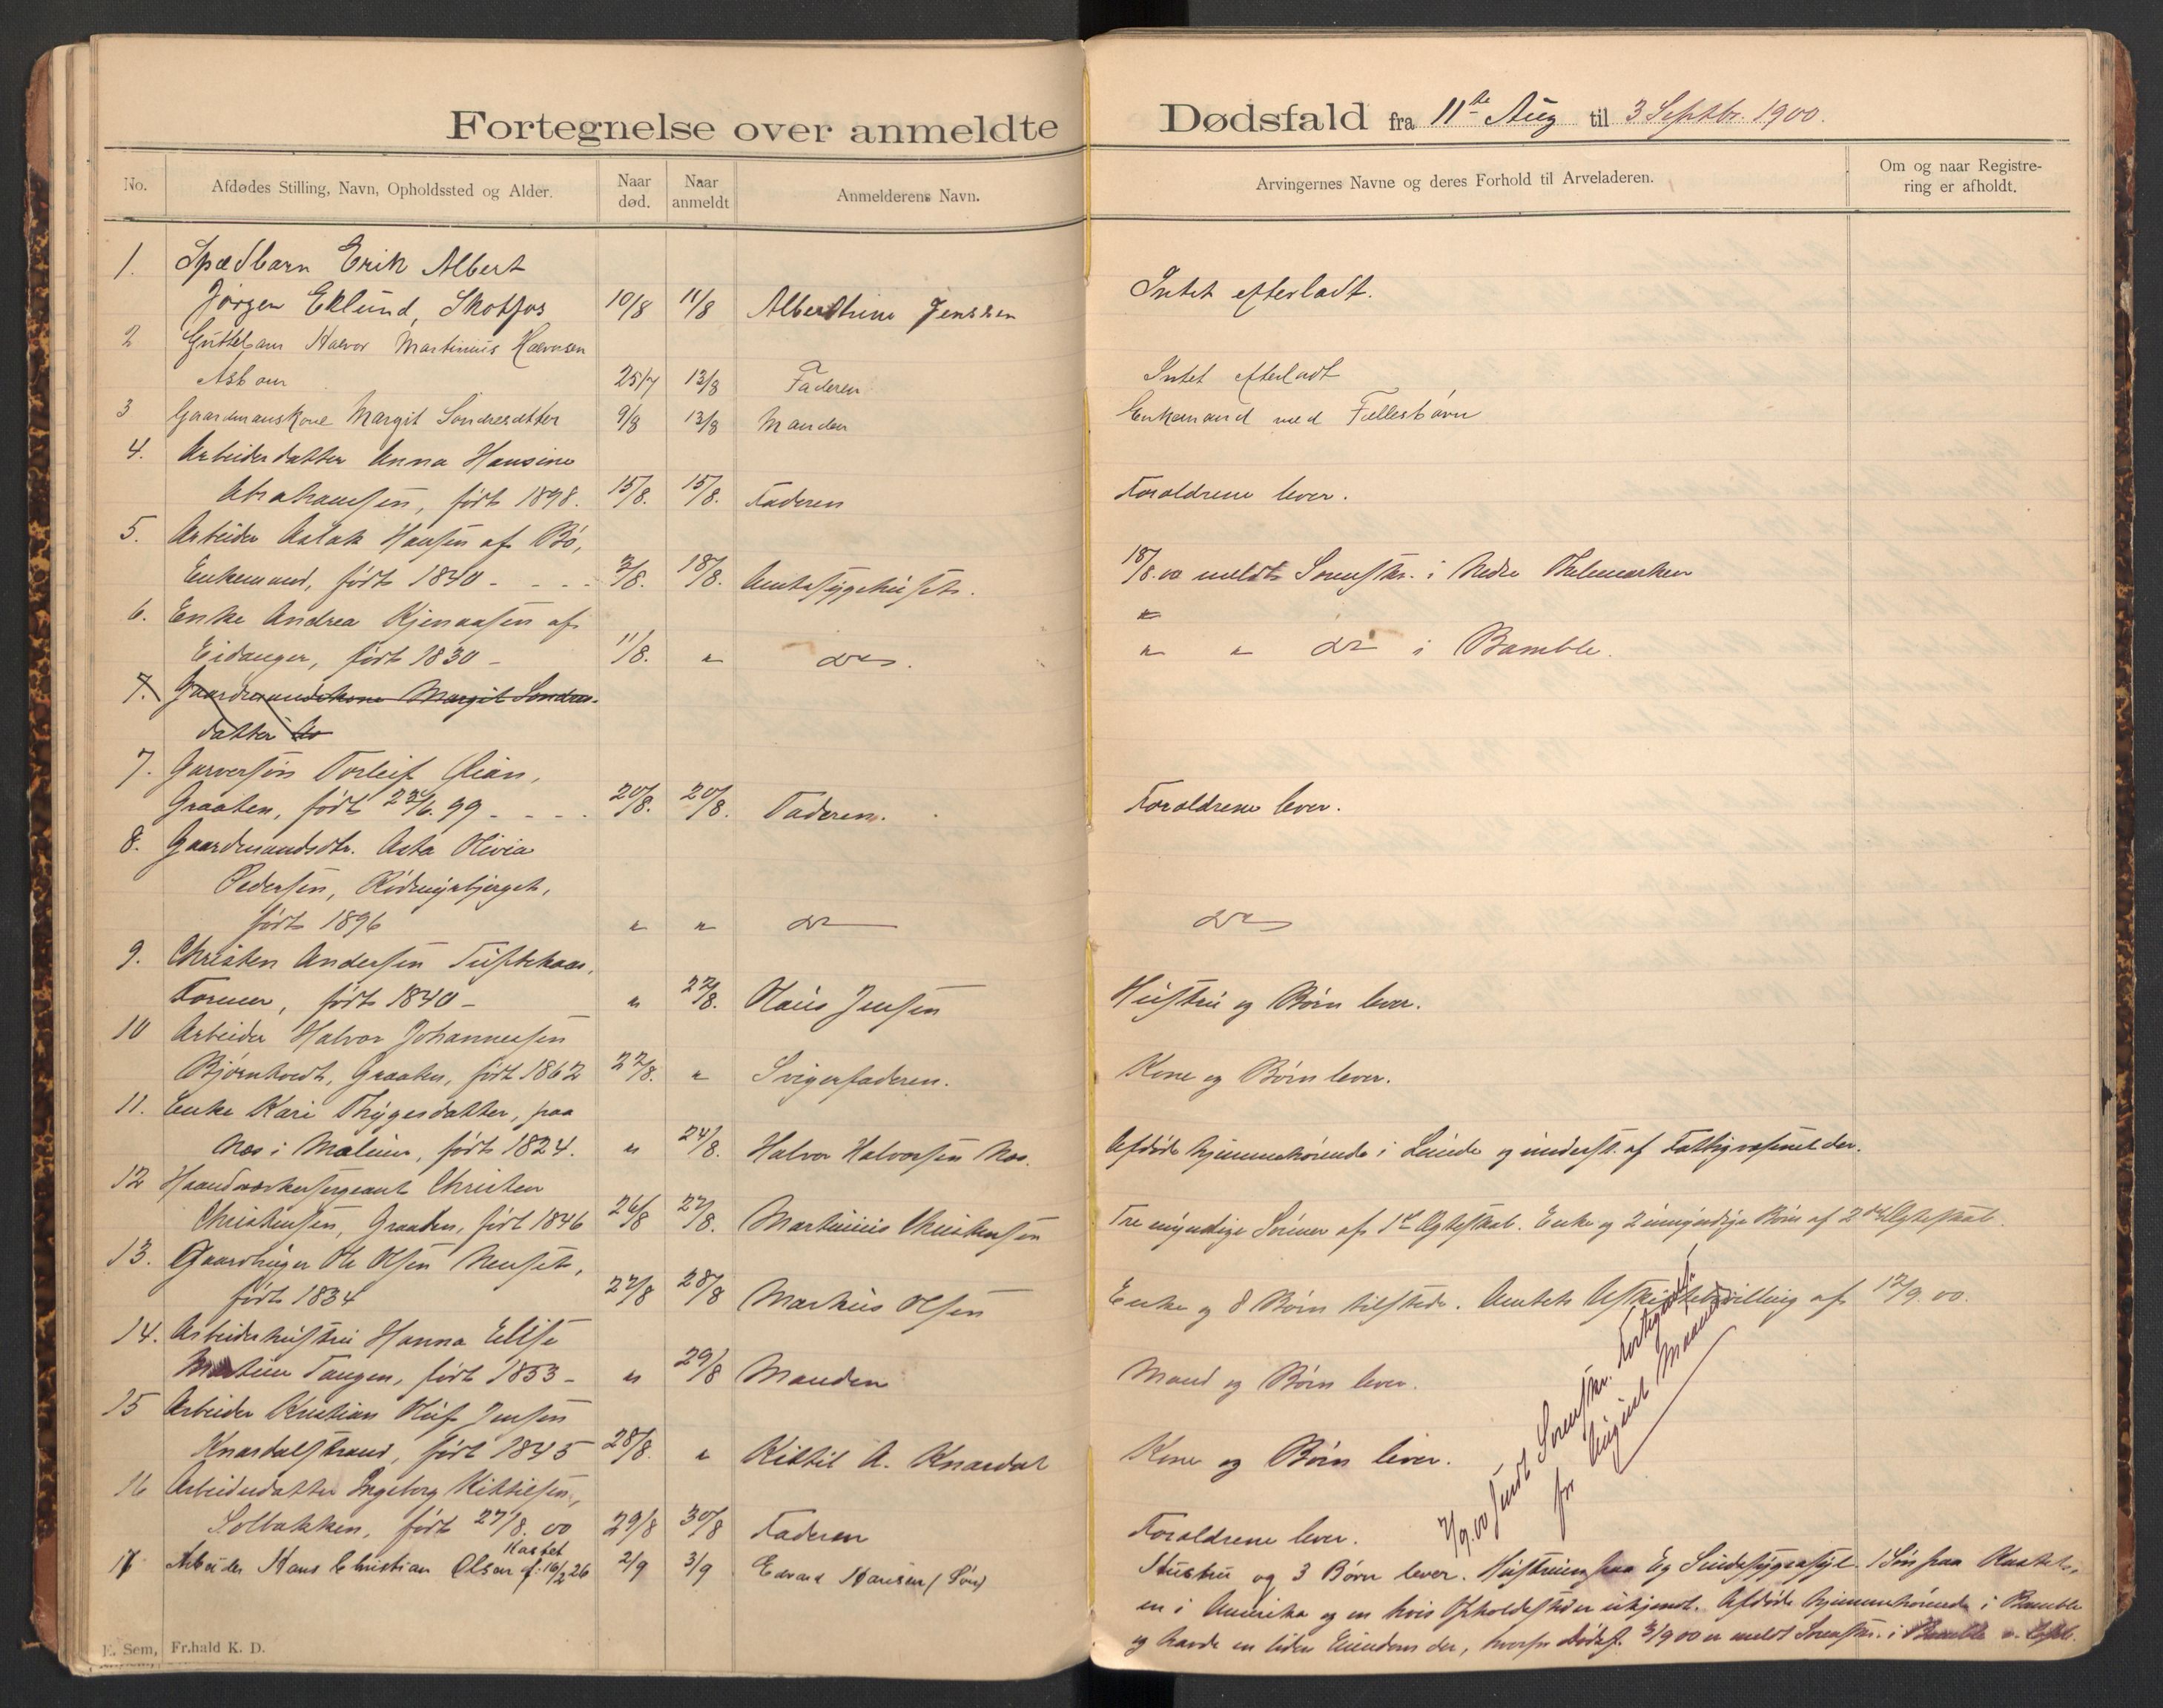 Fortegnelse over anmeldte Dødsfald fra 11te Aug til 3 Septbr. 1900.
No.
Afdødes Stilling, Navn, Opholdssted og Alder.
Naar død.
Naar anmeldt
Anmelderens Navn.
Arvingernes Navne og deres Forhold til Arveladeren.
Om og naar Registrering er afholdt.
1. Spædbarn Erik Albert
Jørgen Eklund, Skotfos 10/8 11/8 Albertine Jenssen Intet efterladt.
2 Guttebarn Halvor Martinius Halvorsen
Aslaur 25/7 13/8 Faderen Intet efterladt
3 Gaardmanskone Margit Sondresdatter 9/8 13/8 Manden Enkemand med Fællesbørn
4. Arbeiderdatter Anna Hansine
Abrahamsen, født 1898. 15/8. 15/8. Faderen Forældrene lever.
5. Arbeider Aslak Hansen af Bø,
Enkemand, født 1840 - - - - 3/8. 18/8. Amtssygehuset. 18/8.00 meldt Sorenskr. i Nedre Thelemarken
6. Enke Andrea Kjenaasen af
Eidanger, født 1830 - 11/8. " do. " " do i Bamble.
7. Gaardmandskone Margit Sondres-
datter
7. Garversøn Torleif Lian,
Graaten, født 22/6. 99 - - - - 20/8. 20/8. Faderen. Forældrene lever.
8. Gaardmandsdtr. Asta Olivia
Pedersen, Rødmyrbjerget,
født 1896 " " do do
9. Christen Andersen Tuftehaas,
Former, født 1840 - " 22/8. Olaus Jensen Hustru og Børn lever.
10 Arbeider Halvor Johannessen
Bjørntvedt, Graaten, født 1862 22/8. " Svigerfaderen. Kone og Børn lever.
11. Enke Kari Thygesdatter, paa
Næs i Mælum, født 1824. " 24/8. Halvor Halvorsen Næs. Afdøde hjemmehørende i Lunde og underst. af Fattigvæsenet der.
12 Haandværkersergeant Christen
Christensen, Graaten, født 1846 26/8 27/8. Martinius Christensen Tre myndige Sønner af 1ste Ægteskab. Enke og 2 umyndige Børn af 2det Ægteskab.
13. Gaardbruger Ole Olsen Menset,
født 1834 27/8 28/8 Markus Olsen Enke og 8 Børn tilstede. Amtets Uskiftebevilling af 12/9. 00.
14. Arbeiderhustru Hanna Elise
Martine Tangen, født 1853 - " 29/8 Manden Mand og Børn lever.
15 Arbeider Kristian Oluf Jensen
Knardalstrand, født 1845 28/8. " Kittil A. Knardal Kone og Børn lever.
16 Arbeiderdatter Ingeborg Kittilsen,
Solbakken, født 27/8. 00 29/8 30/8 Faderen Forældrene lever.
7/9.00 sendt Sorenskr. Fortegnelse
for August Maaned
Kastet
17 Arbeider Hans Christian Olsen f. 16/2 26 2/9 3/9 Edvard Hansen (Søn) Hustru og 3 Børn lever. Hustruen paa Eg Sindssygeasyl. 1 Søn paa Kastet,
en i Amerika og en hvis Opholdssted er ukjendt. Afdøde hjemmehørende i Bamble
og havde en liden Eiendom der, hvorfor Dødsf. 3/9 00 er meldt Sorenskr. i Bamble
E. Sem, Fr.hald K. D.